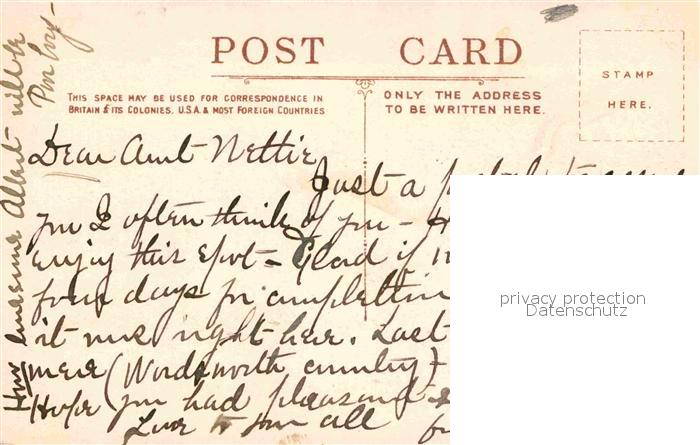 POST CARD
THIS SPACE MAY BE USED FOR CORRESPONDENCE IN
BRITAIN & ITS COLONIES, U.S.A. & MOST FOREIGN COUNTRIES
ONLY THE ADDRESS
TO BE WRITTEN HERE.
STAMP
HERE.
Dear Aunt Nettie
Just a
you I often think of you -
enjoy this spot - Glad if
four days for
it was right here. Last
mere (Wordsworth country)
Hope you had pleasant
Love to you all
How awesome Albert will be
privacy protection
Datenschutz